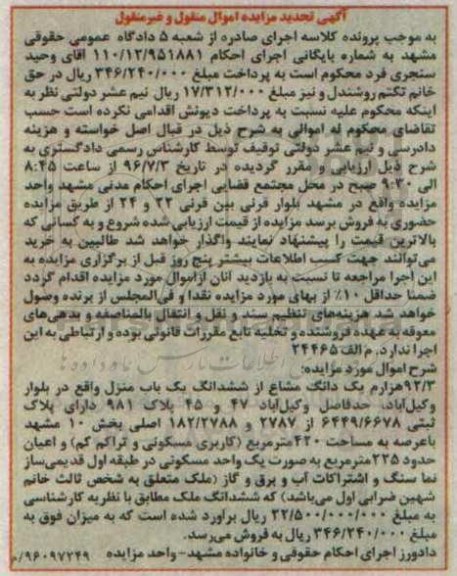 آگهی تجدید مزایده اموال منقول و غیرمنقول
به موجب پرونده کلاسه اجرای صادره از شعبه ۵ دادگاه عمومی حقوقی
مشهد به شماره بایگانی اجرای احکام ۱۱۰/۱۲/۹۵۱۸۸۱ آقای وحید
سنجری فرد محکوم است به پرداخت مبلغ ۳۴۶/۲۴۰/۰۰۰ ریال در حق
خانم تکتم روشندل و نیز مبلغ ۱۷/۳۱۲/۰۰۰ ریال نیم عشر دولتی نظر به
اینکه محکوم علیه نسبت به پرداخت دیونش اقدامی نکرده است حسب
تقاضای محکوم له اموالی به شرح ذیل در قبال اصل خواسته و هزینه
دادرسی و نیم عشر دولتی توقیف توسط کارشناس رسمی دادگستری به
شرح ذیل ارزیابی و مقرر گردیده در تاریخ ۹۶/۷/۳ از ساعت ۸:۴۵
الی ۹:۳۰ صبح در محل مجتمع قضایی اجرای احکام مدنی مشهد واحد
مزایده واقع در مشهد بلوار قرنی بین قرنی ۲۲ و ۲۴ از طریق مزایده
حضوری به فروش برسد مزایده از قیمت ارزیابی شده شروع و به کسانی که
بالاترین قیمت را پیشنهاد نمایند واگذار خواهد شد طالبین به خرید
می‌توانند جهت کسب اطلاعات بیشتر پنج روز قبل از برگزاری مزایده به
این اجرا مراجعه تا نسبت به بازدید آنان ازاموال مورد مزایده اقدام گردد
ضمنا حداقل ۱۰٪ از بهای مورد مزایده نقدا و فی‌المجلس از برنده وصول
خواهد شد هزینه‌های تنظیم سند و نقل و انتقال بالمناصفه و بدهی‌های
معوقه به عهده فروشنده و تخلیه تابع مقررات قانونی بوده و ارتباطی به این
اجرا ندارد. م الف ۲۴۴۶۵
شرح اموال مورد مزایده:
۹۲/۳هزارم یک دانگ مشاع از ششدانگ یک باب منزل واقع در بلوار
وکیل‌آباد، حدفاصل وکیل‌آباد ۴۷ و ۴۵ پلاک ۹۸۱ دارای پلاک
ثبتی ۶۴۴۹/۶۶۷۸ از ۲۷۸۷ و ۱۸۲/۲۷۸۸ اصلی بخش ۱۰ مشهد
باعرصه به مساحت ۴۲۰مترمربع (کاربری مسکونی و تراکم کم) و اعیان
حدود ۲۲۵مترمربع به صورت یک واحد مسکونی در طبقه اول قدیمی‌ساز
نما سنگ و اشتراکات آب و برق و گاز (ملک متعلق به شخص ثالث خانم
شهین ضرابی اول می‌باشد) که ششدانگ ملک مطابق با نظر به کارشناسی
به مبلغ ۲۲/۵۰۰/۰۰۰/۰۰۰ ریال برآورد شده است که به میزان فوق به
مبلغ ۳۴۶/۲۴۰/۰۰۰ ریال به فروش می‌رسد.
دادورز اجرای احکام حقوقی و خانواده مشهد- واحد مزایده ۹۶۰۹۷۲۴۹/م